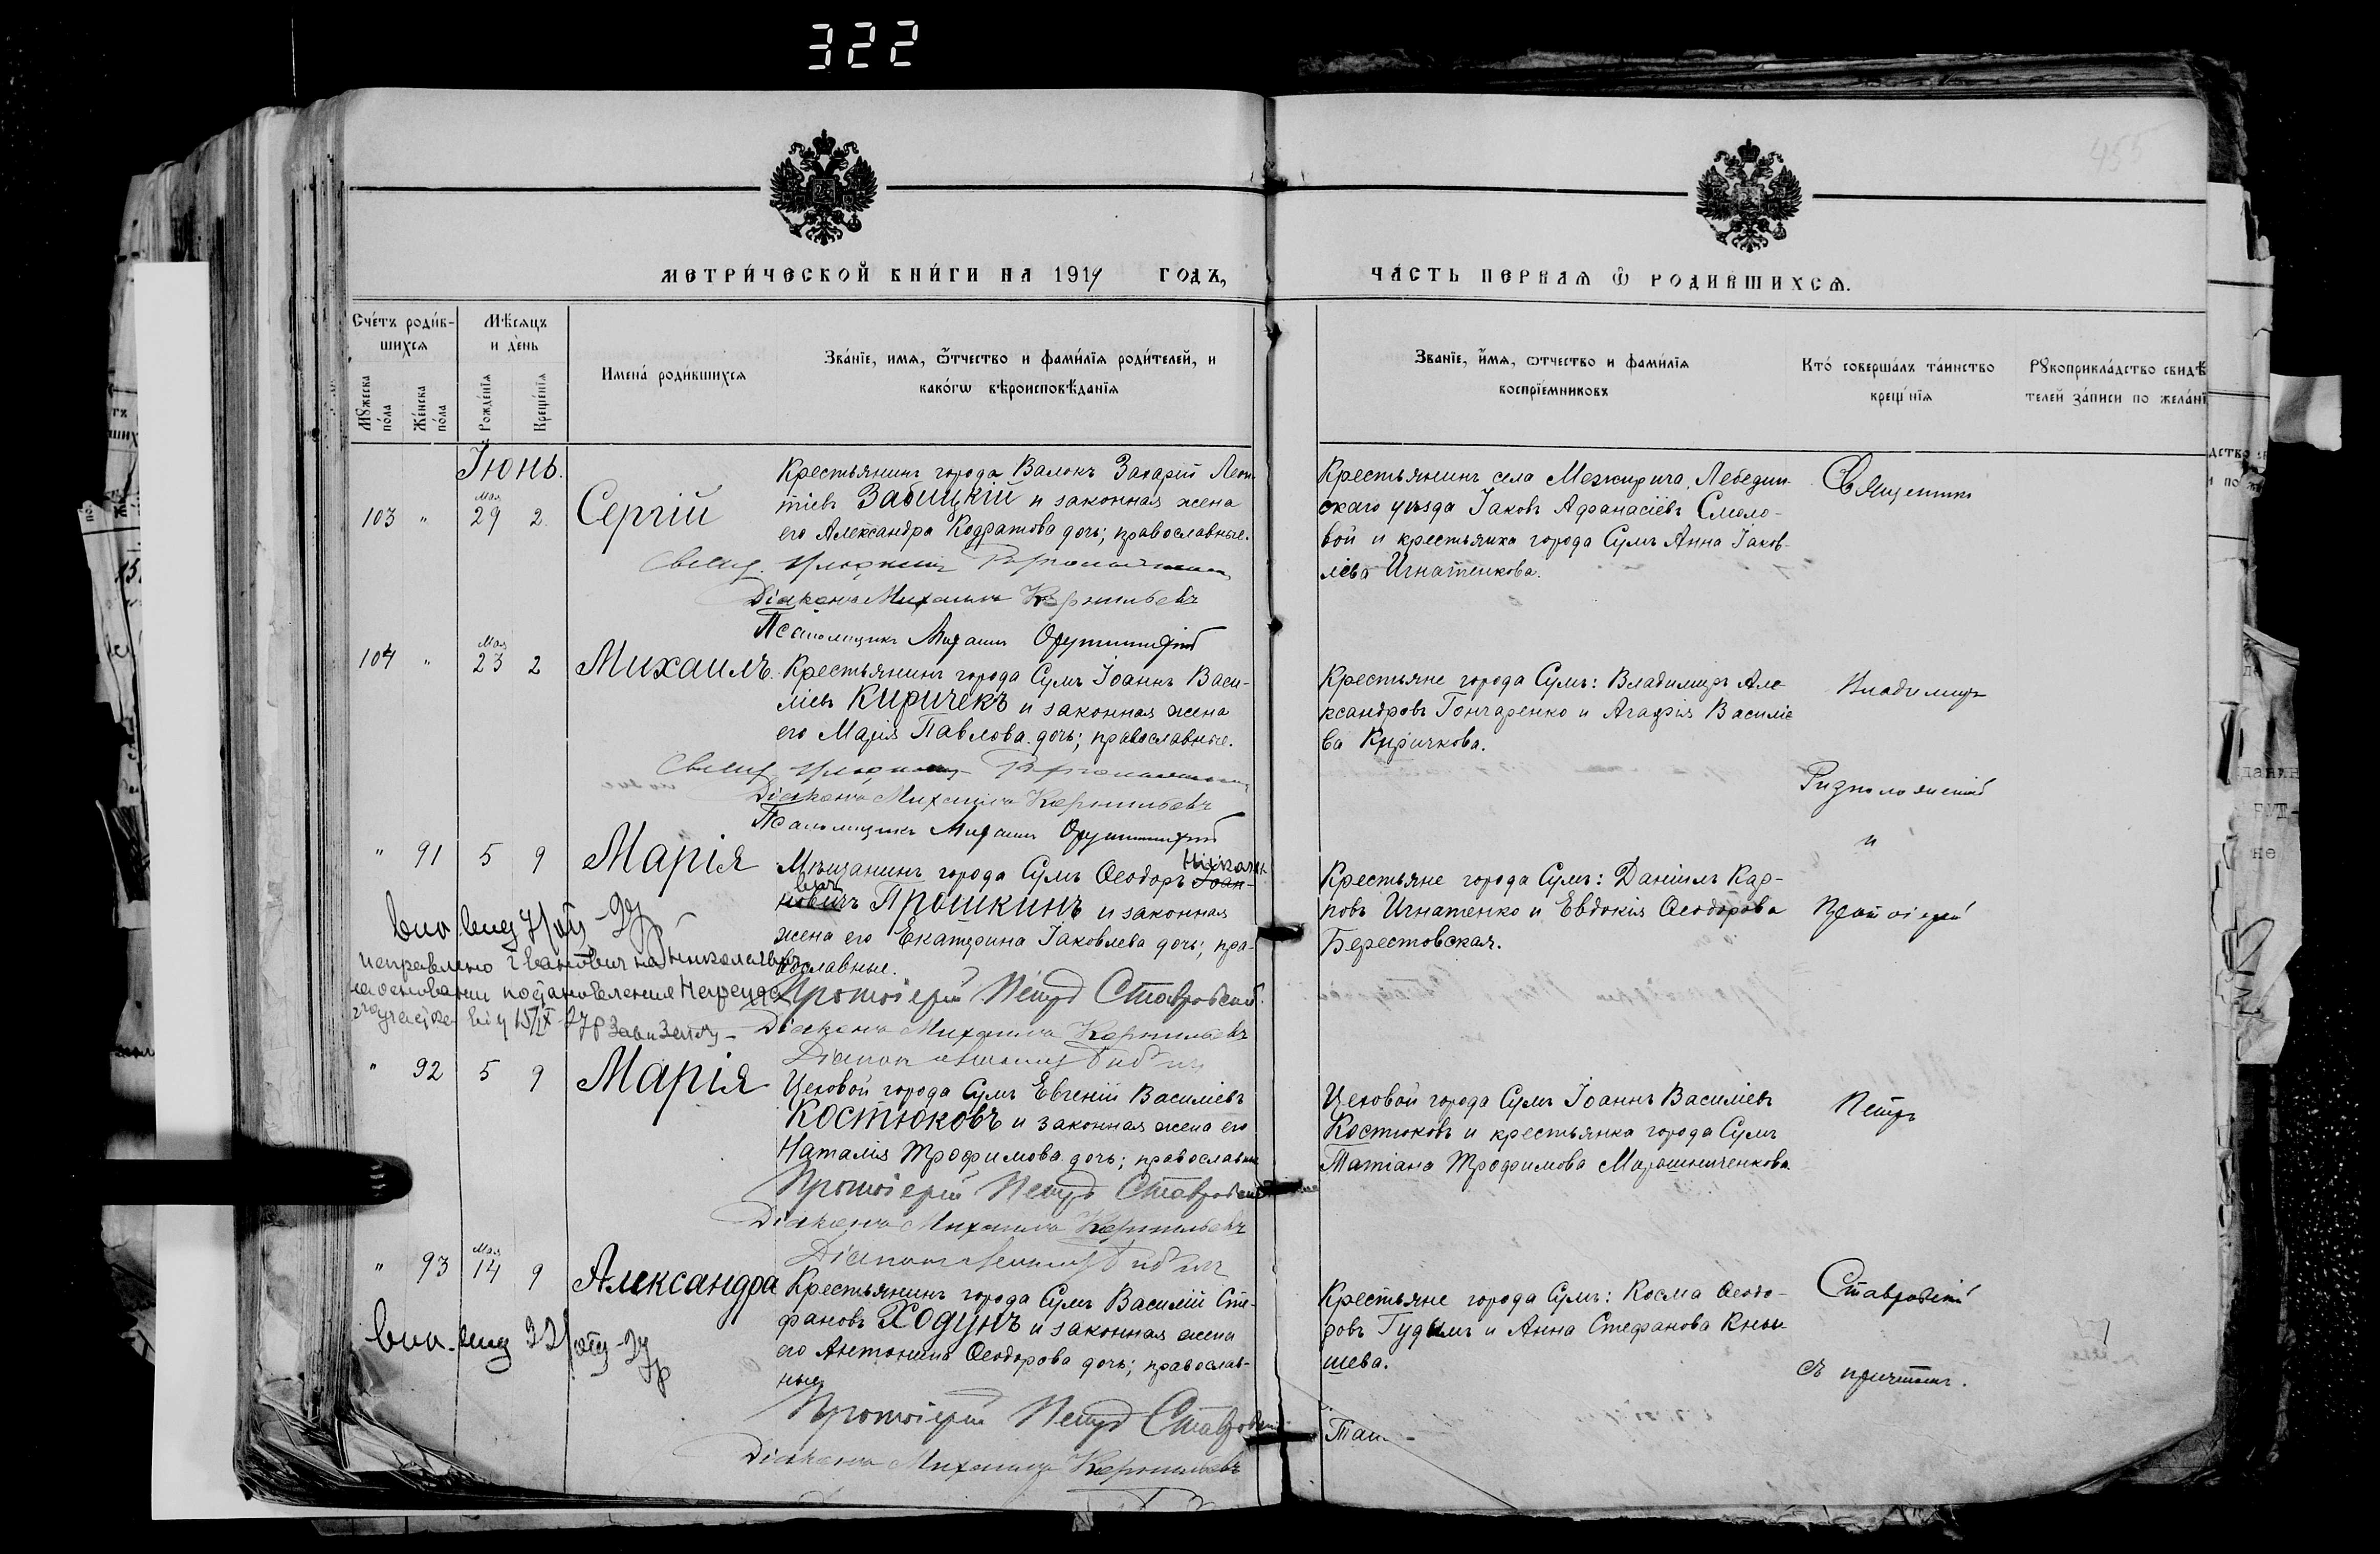 322
455
МЕТРИЧЕСКОЙ КНИГИ НА 1917 ГОДЪ,
ЧАСТЬ ПЕРВАЯ Ѿ РОДИВШИХСЯ.
Счетъ родив-
шихся
Мѣсяцъ
и день
Мꙋжеска
пола
Женска
пола
Рожденїя
Крещенїя
Имена родившихся
Званїе, имя, ѿтчество и фамилїя родителей, и
какогѡ вѣроисповѣданїя
Званїе, имя, ѿтчество и фамилїя
воспрїемниковъ
Кто совершалъ таинство
крещенїя
Рꙋкоприкладство свидѣ
телей записи по желанї
Іюнь.
103 " Мая 29 2. Сергій
Крестьянинъ города Валокъ Захарій Леон-
тіевъ Забицкій и законная жена
его Александра Кодратова дочь; православные.
Крестьянинъ села Межирича, Лебедин-
скаго уѣзда Іаковъ Афанасіевъ Смоло-
вой и крестьянка города Сумъ Анна Іаков-
лева Игнатенкова.
Священникъ
Діаконъ Михаилъ
Псаломщикъ Михаилъ
104 " Мая 23 2 Михаилъ.
Крестьянинъ города Сумъ Іоаннъ Васи-
ліевъ Киричекъ и законная жена
его Марія Павлова дочь; православные.
Крестьяне города Сумъ: Владимиръ Але-
ксандровъ Гончаренко и Агафія Василіе
ва Киричкова.
Владимиръ
Ризположенскій
и
Діаконъ Михаилъ
Псаломщикъ Михаилъ
" 91 5 9 Марія
Мѣщанинъ города Сумъ Ѳеодоръ Іоан-
Николае
новичъ Прошкинъ и законная
вичъ
жена его Екатерина Іаковлева дочь; пра-
вославные.
Крестьяне города Сумъ: Даніилъ Кар-
повъ Игнатенко и Евдокія Ѳеодорова
Берестовская.
Протоіерей
исправлено Іванович на Николаевич
на основании постановления
Протоіерей Петръ Ставровскій.
Діаконъ Михаилъ
" 92 5 9 Марія
Цеховой города Сумъ Евгеній Василіевъ
Костюковъ и законная жена его
Наталія Трофимова дочь; православные
Цеховой города Сумъ Іоаннъ Василіевъ
Костюковъ и крестьянка города Сумъ
Татіана Трофимова Мирошниченкова.
Петръ
Протоіерей Петръ Ставровскій
Діаконъ Михаилъ
" 93 Мая 14 9 Александра
Крестьянинъ города Сумъ Василій Сте-
фановъ Ходунъ и законная жена
его Антонина Ѳеодорова дочь; православ-
ные.
Крестьяне города Сумъ: Косма Ѳеодо-
ровъ Гудымъ и Анна Стефанова Кныш
шева.
Ставровскій
съ причтомъ.
Протоіерей Петръ Ставровскій
Діаконъ Михаилъ